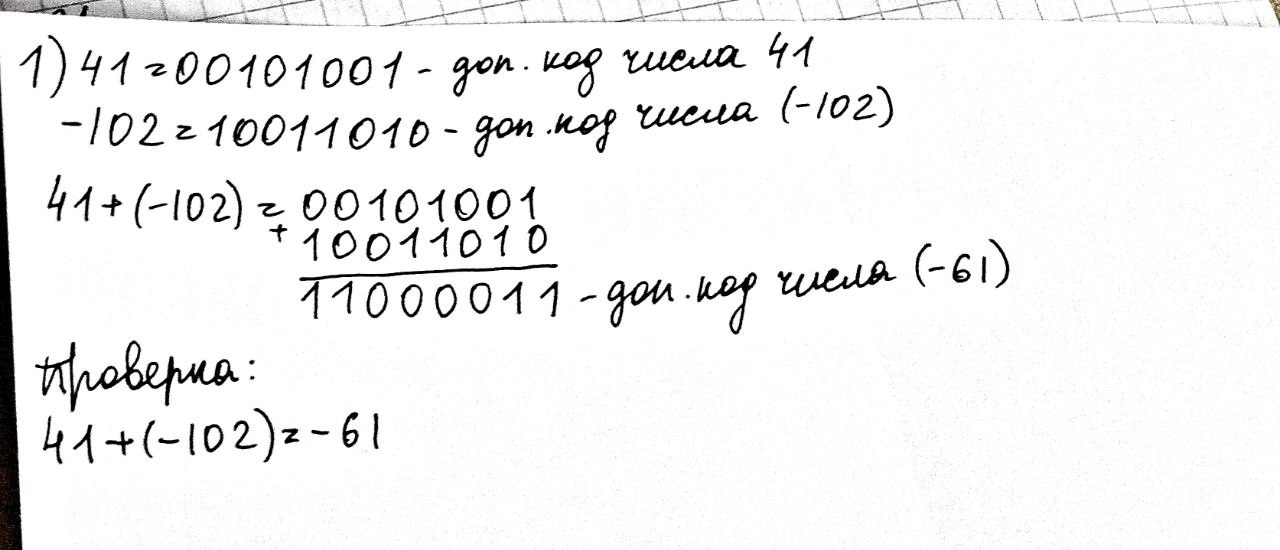 1) 41=00101001 - доп. код числа 41
-102=10011010 - доп. код числа (-102)
41+(-102)= 00101001
+ 10011010
11000011 - доп. код числа (-61)
Проверка:
41+(-102)=-61